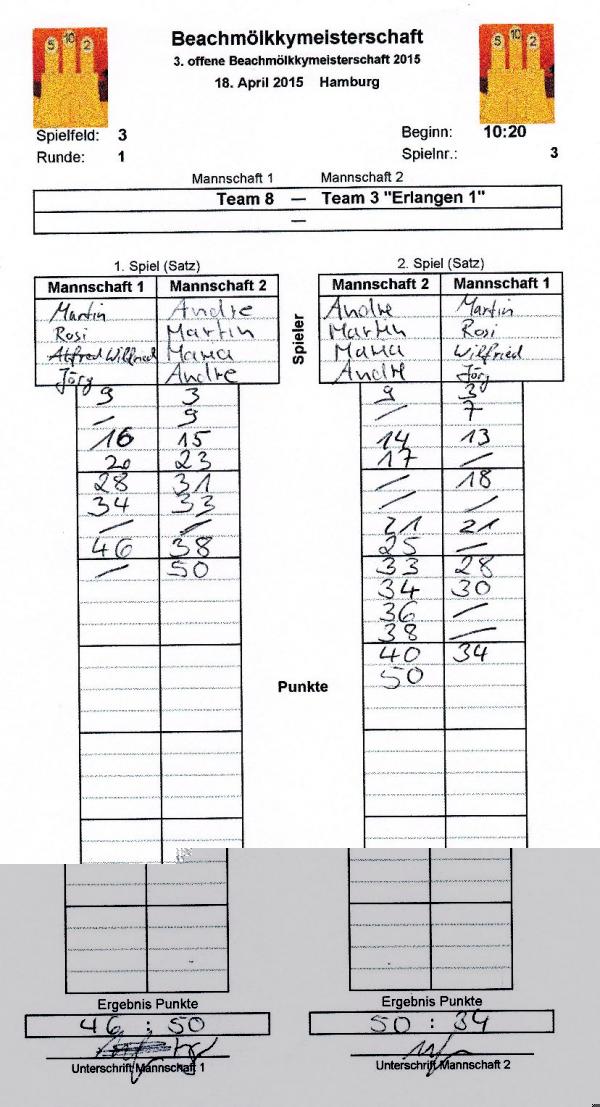 5 10 2
Beachmölkkymeisterschaft
5 10 2
3. offene Beachmölkkymeisterschaft 2015
18. April 2015 Hamburg
Spielfeld: 3
Beginn: 10:20
Runde: 1
Spielnr.: 3
Mannschaft 1 Mannschaft 2
Team 8 — Team 3 "Erlangen 1"
—
1. Spiel (Satz) 2. Spiel (Satz)
Mannschaft 1 Mannschaft 2 Mannschaft 2 Mannschaft 1
Martin Andre Andre Martin
Rosi Martin Martin Rosi
Alfred Wilfried Maria Maria Wilfried
Jörg Andre Andre Jörg
Spieler
9 3 9 3
/ 9 / 7
16 15 14 13
20 23 17 /
28 31 / 18
34 33 / /
/ / 21 21
46 38 25 /
/ 50 33 28
34 30
36 /
38 /
40 34
50
Punkte
Ergebnis Punkte Ergebnis Punkte
46 : 50 50 : 34
Unterschrift Mannschaft 1 Unterschrift Mannschaft 2